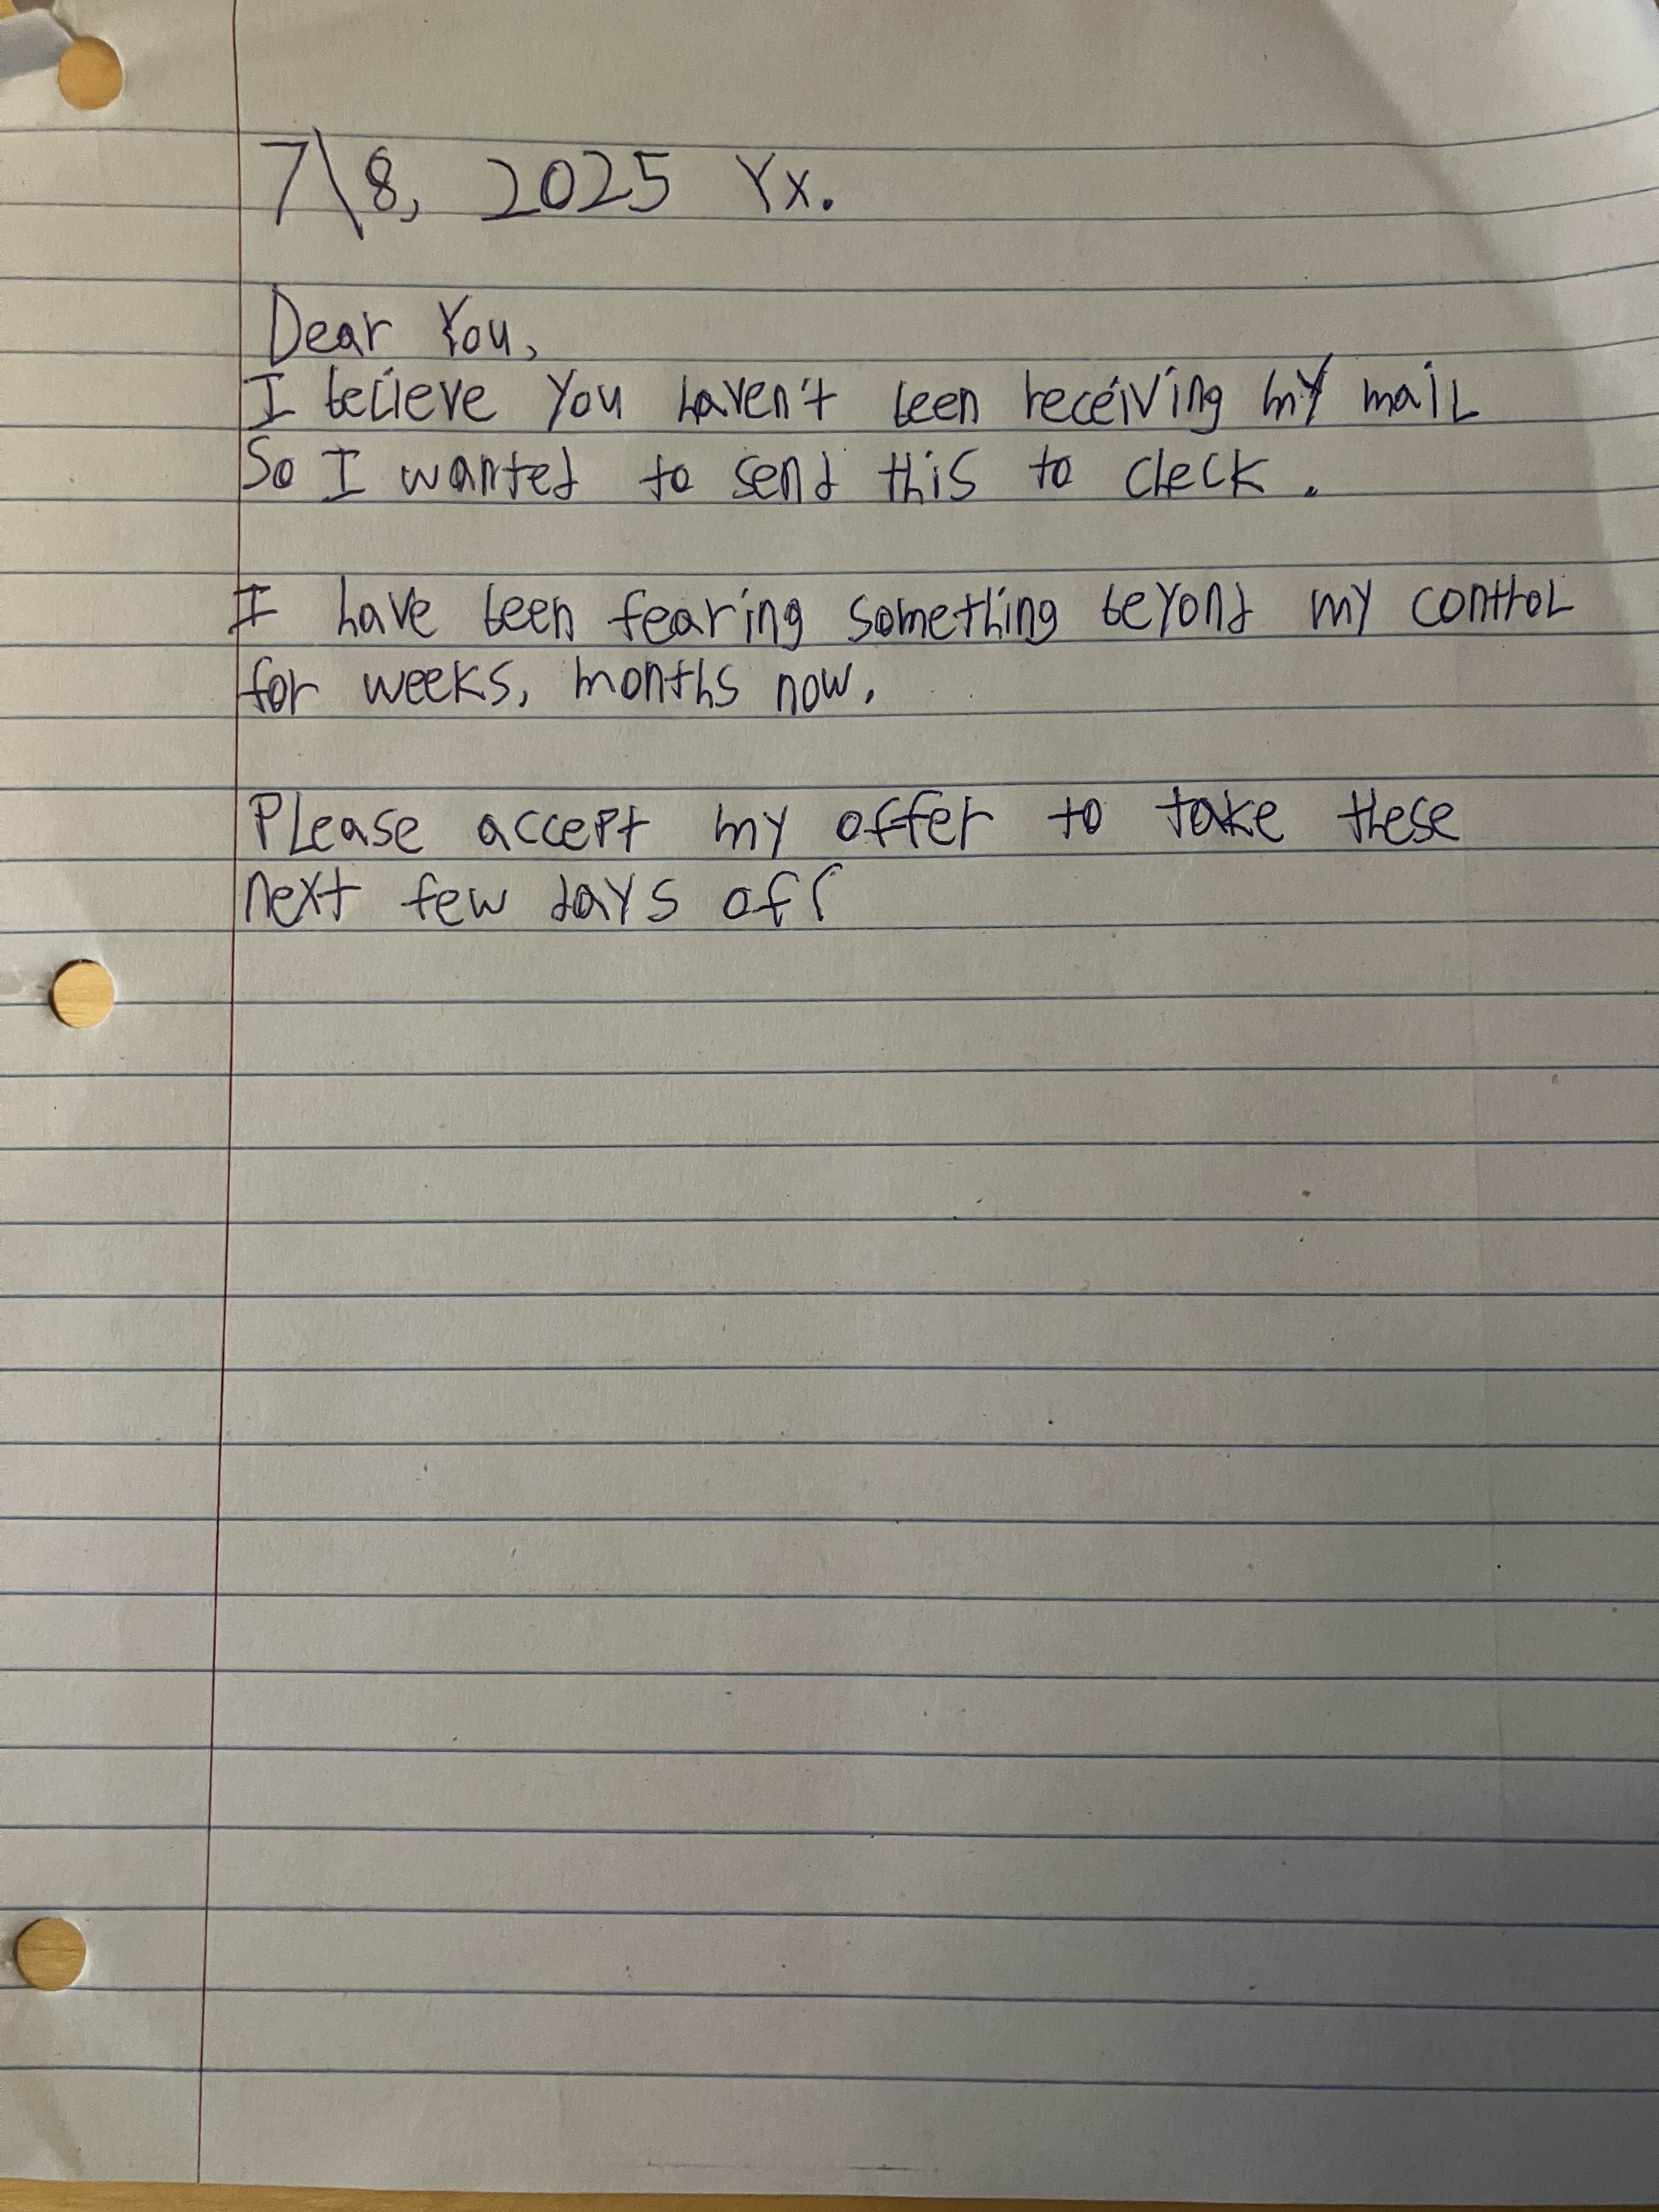 7\8, 2025 Yx.
Dear You,
I believe you haven't been receiving my mail
So I wanted to send this to check.
I have been fearing something beyond my control
for weeks, months now.
Please accept my offer to take these
next few days off